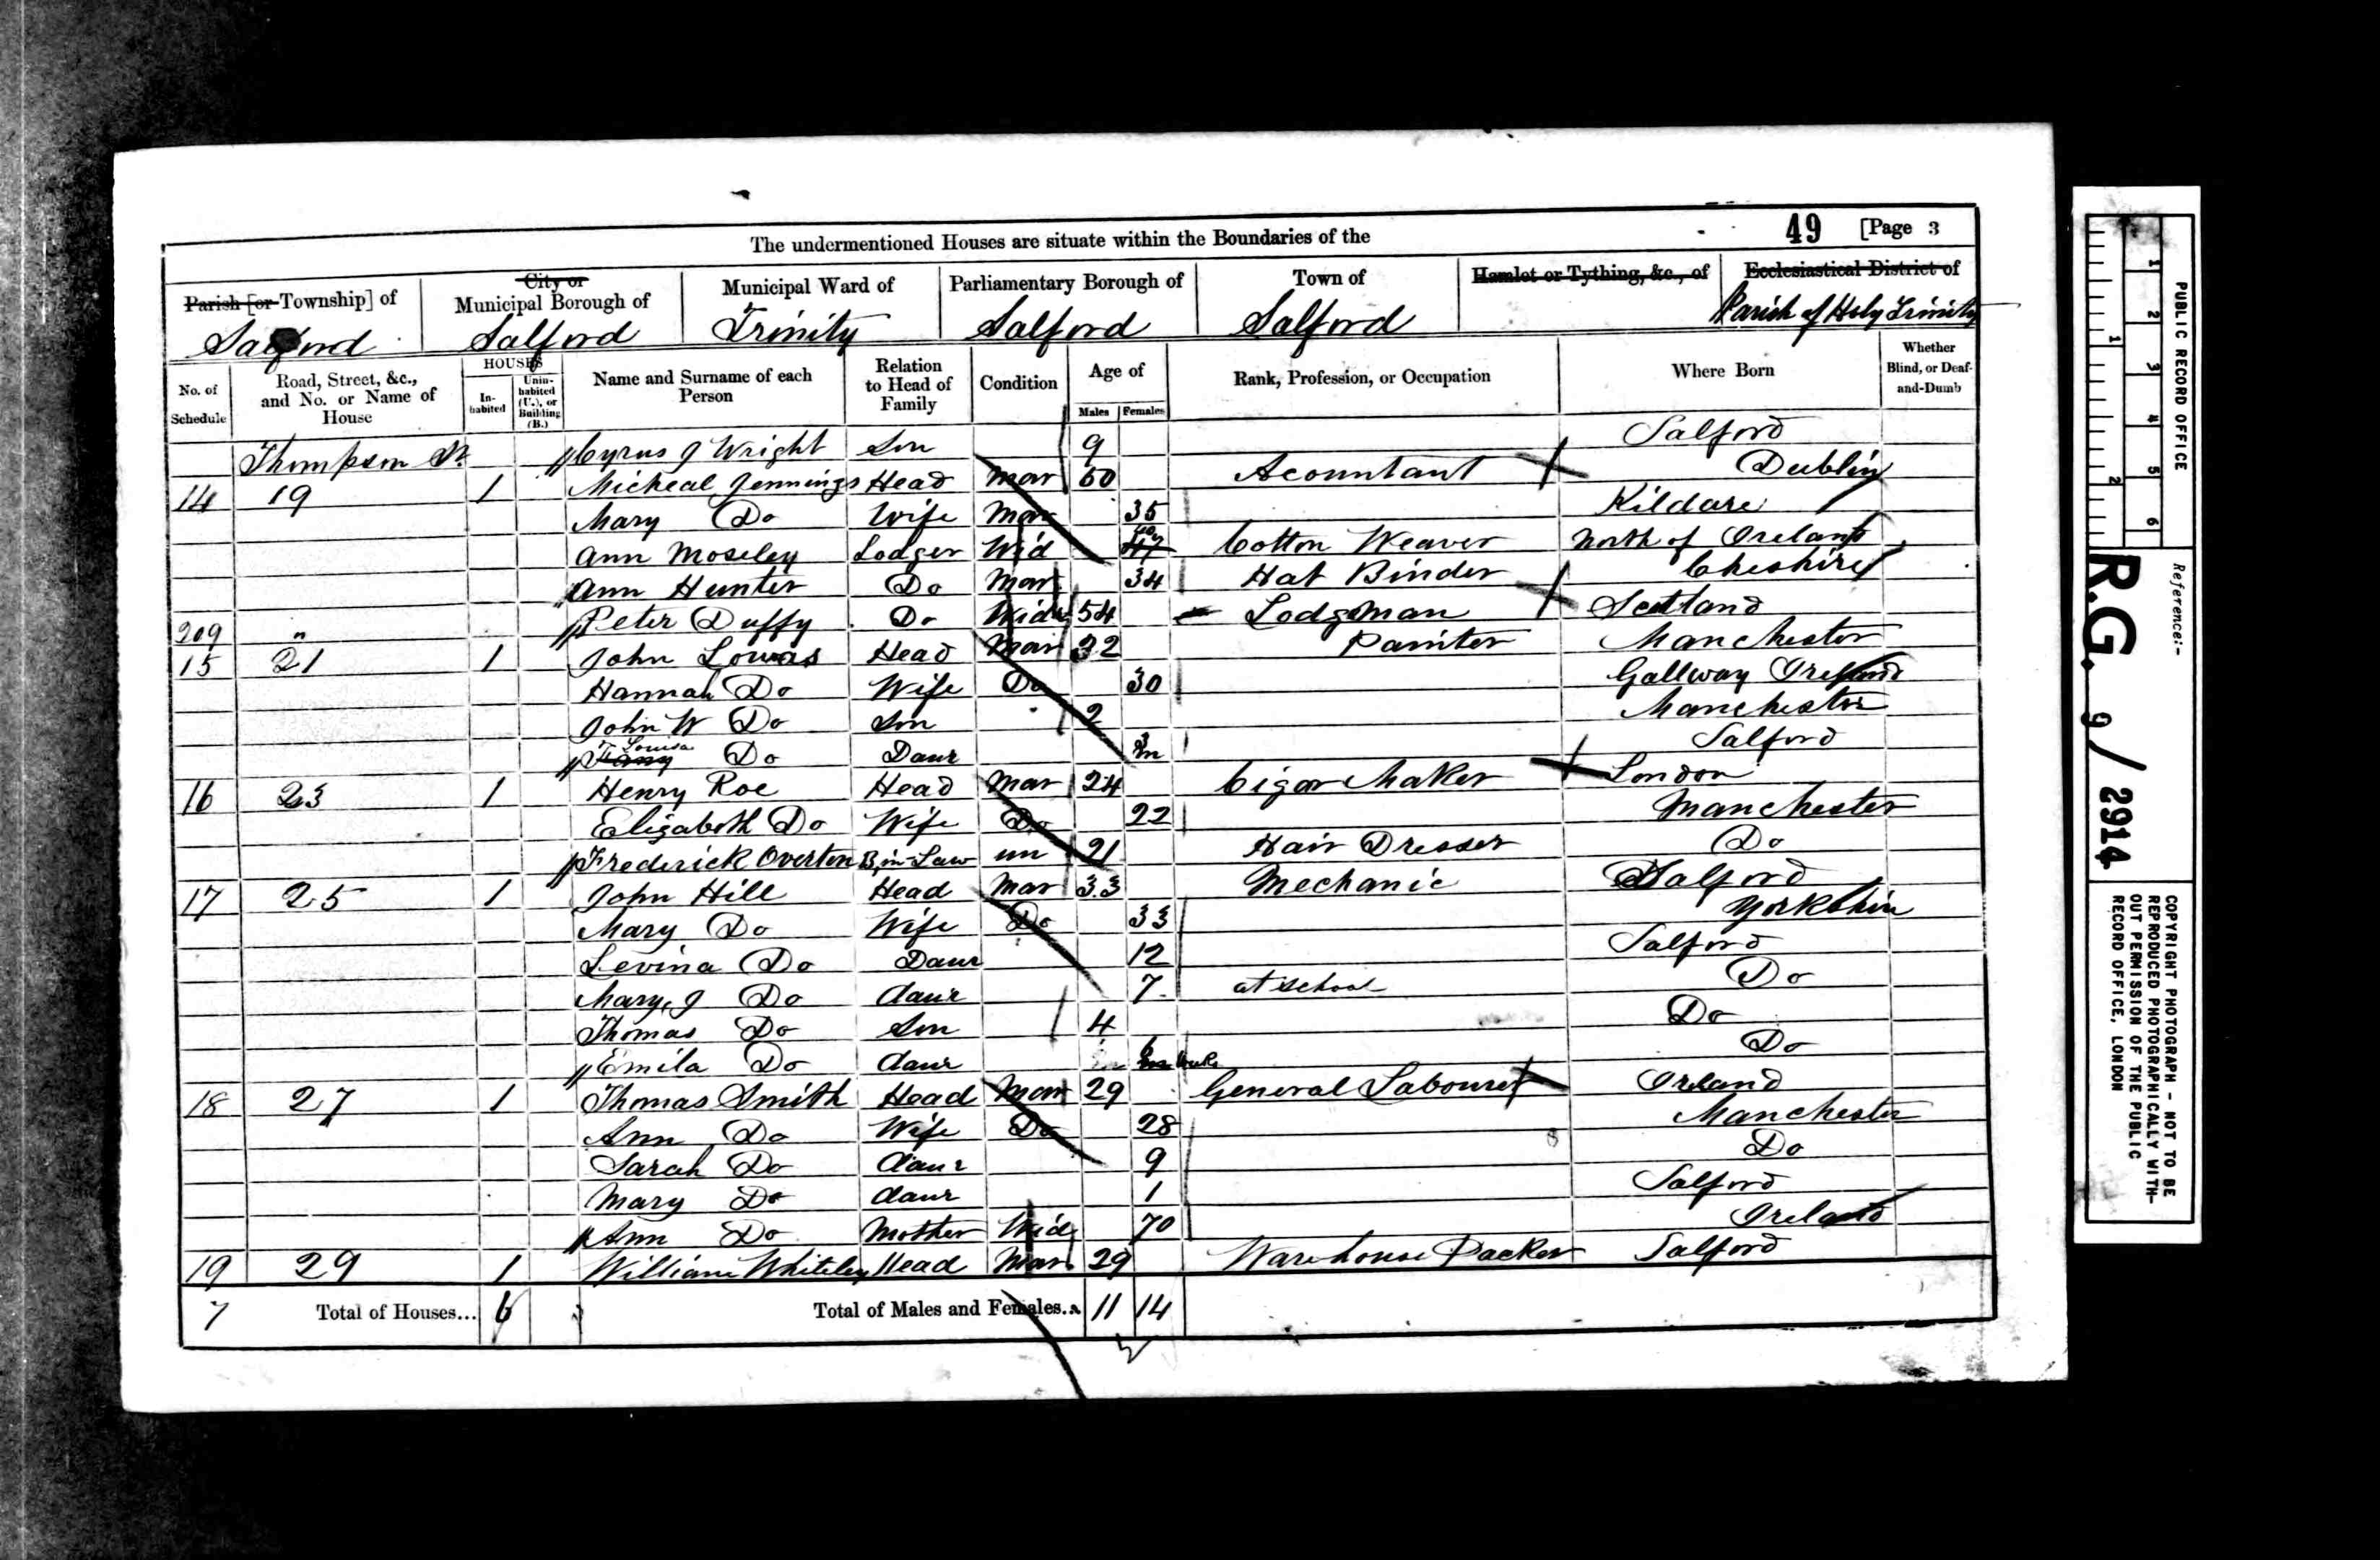 49 [Page 3
The undermentioned Houses are situate within the Boundaries of the
Parish [or Township] of
City or Municipal Borough of
Municipal Ward of
Parliamentary Borough of
Town of
Hamlet or Tything, &c., of
Ecclesiastical District of
Salford Salford Trinity Salford Salford Parish of Holy Trinity
No. of Schedule
Road, Street, &c., and No. or Name of House
HOUSES
In-habited
Unin-habited (U.), or Building (B.)
Name and Surname of each Person
Relation to Head of Family
Condition
Age of
Males Females
Rank, Profession, or Occupation
Where Born
Whether Blind, or Deaf-and-Dumb
Thompson St. Cyrus J Wright Son 9 Salford
14 19 1 Micheal Jennings Head Mar 60 Acountant Dublin
Mary Do Wife Mar 35 Kildare
Ann Moseley Lodger Wid 47 Cotton Weaver North of Ireland
Ann Hunter Do Mar 34 Hat Binder Cheshire
209 " Peter Duffy Do Widr 54 Lodgman Scotland
15 21 1 John Lowas Head Mar 32 Painter Manchester
Hannah Do Wife Do 30 Gallway Ireland
John W Do Son 2 Manchester
Louisa Do Daur 3m Salford
16 23 1 Henry Roe Head Mar 24 Cigar Maker London
Elizabeth Do Wife Do 22 Manchester
Frederick Overton B,in-Law un 21 Hair Dresser Do
17 25 1 John Hill Head Mar 33 Mechanic Salford
Mary Do Wife Do 33 Yorkshire
Levina Do Daur 12 Salford
Mary, J Do daur 7 at school Do
Thomas Do Son 4 Do
Emila Do daur 6 weeks Do
18 27 1 Thomas Smith Head Mar 29 General Labourer Ireland
Ann Do Wife Do 28 Manchester
Sarah Do daur 9 Do
Mary Do daur 1 Salford
Ann Do Mother Wid 70 Ireland
19 29 1 William Whiteley Head Mar 29 Warehouse Packer Salford
7 Total of Houses... 6 Total of Males and Females.. 11 14
PUBLIC RECORD OFFICE
1 2 3 4 5 6
1 2
Reference:-
R.G. 9/2914
COPYRIGHT PHOTOGRAPH - NOT TO BE
REPRODUCED PHOTOGRAPHICALLY WITH-
OUT PERMISSION OF THE PUBLIC
RECORD OFFICE, LONDON